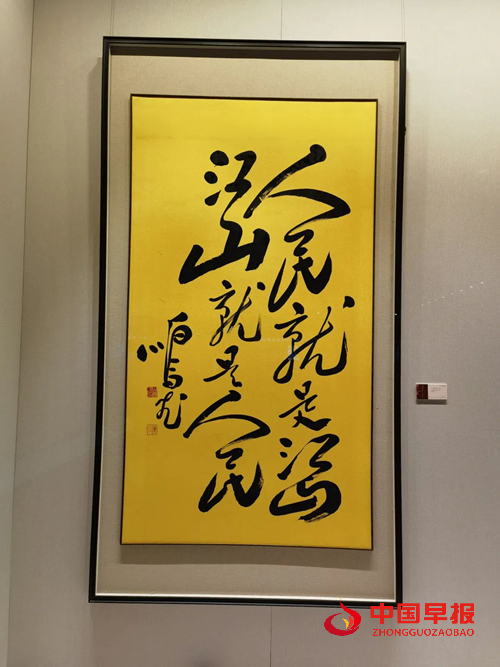 人民就是江山
江山就是人民
中国早报
ZHONGGUOZAOBAO